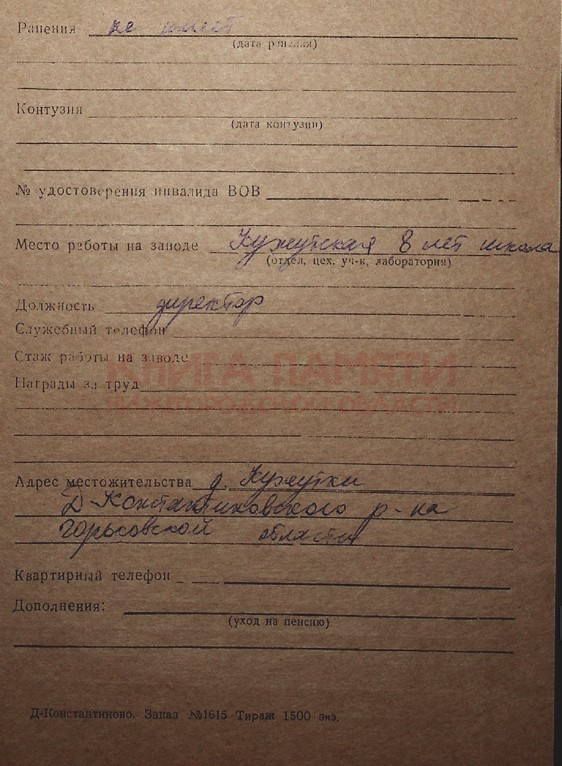 Ранения не имеет
(дата ранения)
Контузия
(дата контузии)
№ удостоверения инвалида ВОВ
Место работы на заводе Кужутская 8 лет школа
(отдел, цех, уч-к, лаборатория)
Должность директор
Служебный телефон
Стаж работы на заводе
КНИГА ПАМЯТИ
Награды за труд
НИЖЕГОРОДСКОЙ ОБЛАСТИ
Адрес местожительства д. Кужутки
Д-Константиновского р-на
Горьковской области
Квартирный телефон
Дополнения:
(уход на пенсию)
Д-Константиново. Заказ №1615 Тираж 1500 экз.